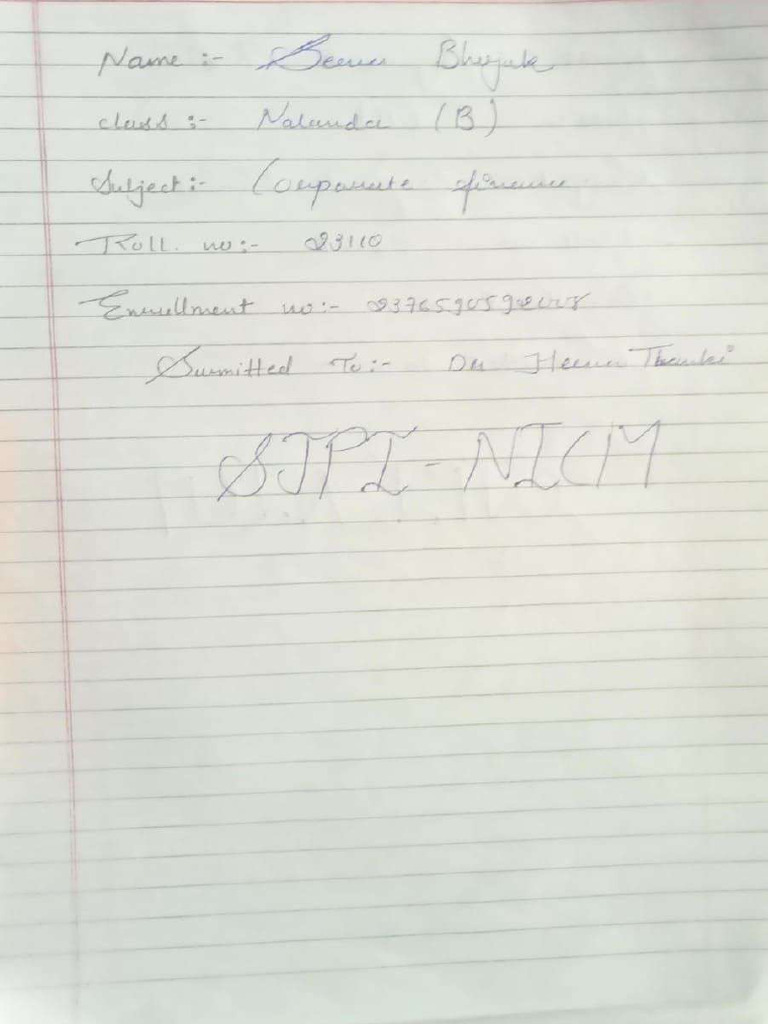 Name :-
class :- Nalanda (B)
Subject :- Corporate finance
Roll. no :- 23110
Enrollment no :-
Submitted To :- Dr Heena Thanki
SJPI - NICM